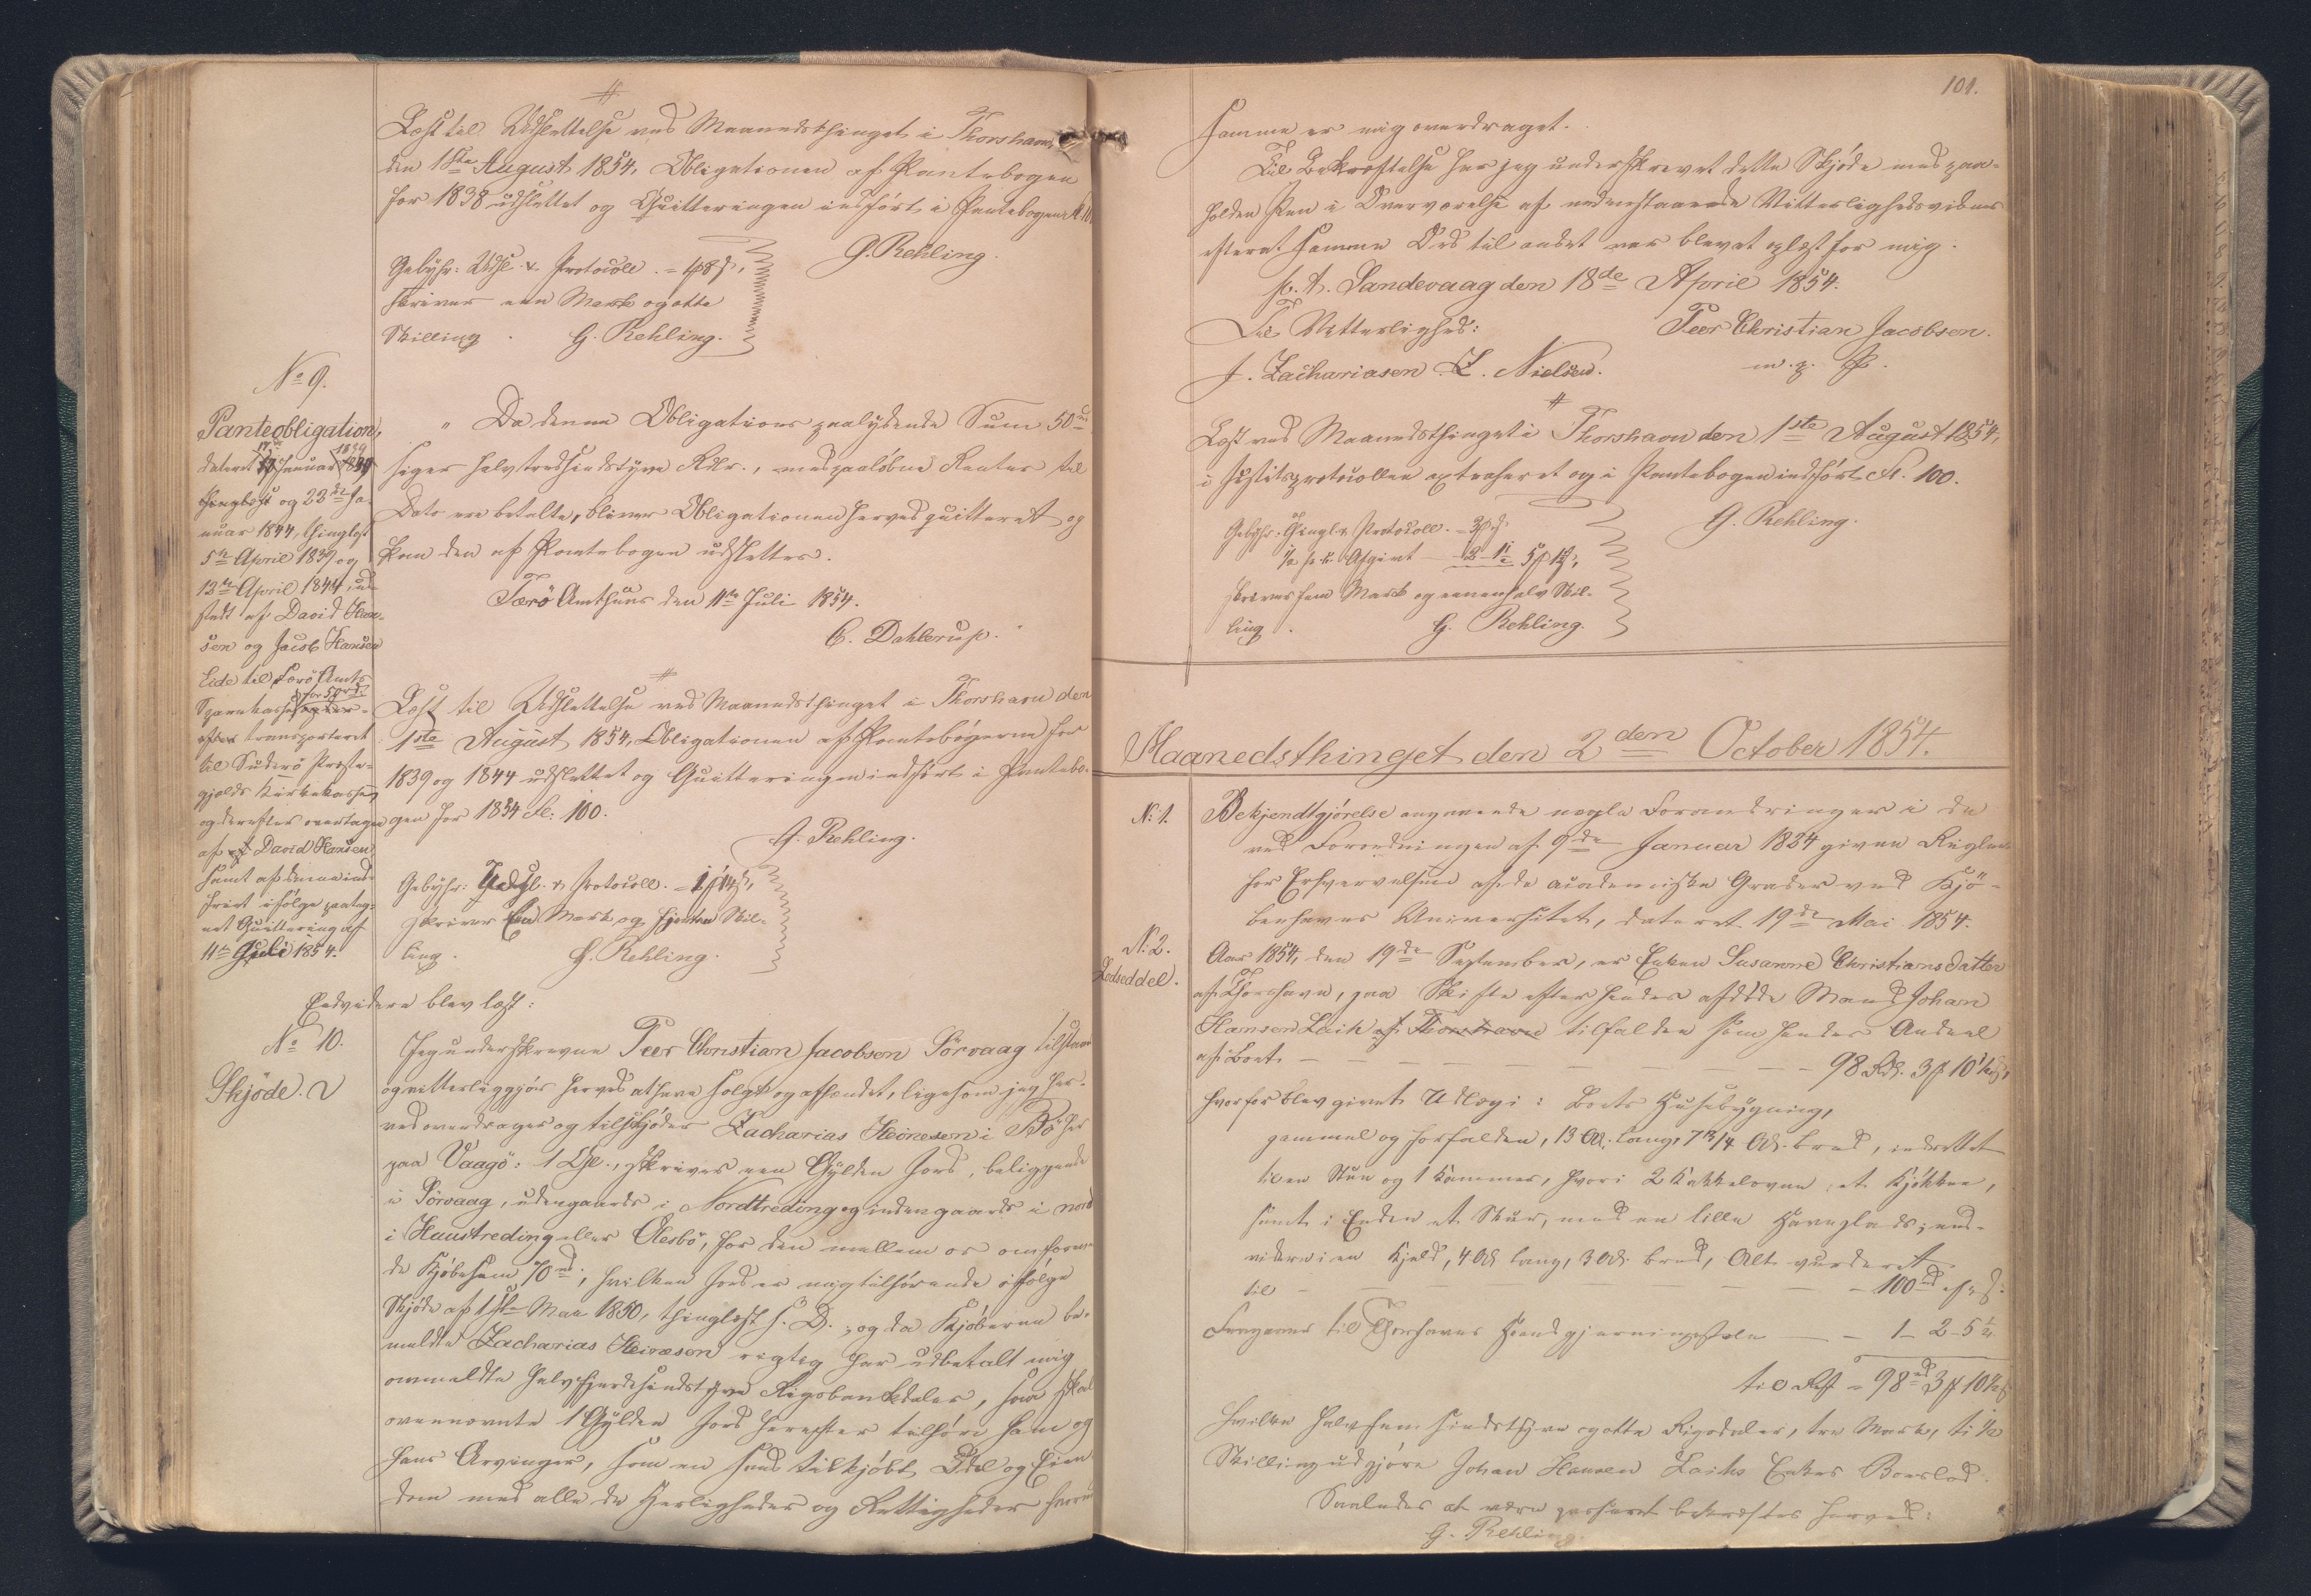 Læst til Udslettelse ved Maanedsthinget i Thorshavn
den 1ste August 1854, Obligationen af Pantebogen
for 1838 udslettet og Quitteringen indført i Pantebogen
G. Rehling.
Gebyhr: Udsl. & Protocoll. = 1 8
skriver een Mark og otte
Skilling. G. Rehling.
No 9.
Panteobligation,
dateret 17 Januar 1839
thinglæst og 22de Ja-
nuar 1844, thinglæst
5te April 1839 og
12te April 1844, ud-
stædt af David Han-
sen og Jacob Hansen
Eide til Færö Amts
Sparekasse for 50 rd.
efter transporteret
til Suderö Præste-
gjelds Kirkekasse,
og derefter overtagen
af David Hansen
samt af denne ind-
friet ifølge paateg-
net Quittering af
11te Juli 1854.
" Da denne Obligations paalydende Sum 50 rd
siger halvtredsindstyve Rdlr., med paaløbne Renter til
Dato ere betalte, bliver Obligationen herved quitteret og
kan den af Pantebogen udslettes.
Færö Amthuus den 11te Juli 1854.
C. Dahlerup.
Læst til Udslettelse ved Maanedsthinget i Thorshavn den
1ste August 1854, Obligationen af Pantebøgerne for
1839 og 1844 udslettet og Quitteringen indført i Pantebo-
gen for 1854 Fol. 100.
G. Rehling.
Gebyhr: Udsl. & Protocoll. = 1 14
skriver Een Mark og fjorten Skil-
ling. G. Rehling.
Endvidere blev læst:
No 10.
Skjöde.
Jeg underskrevne Peer Christian Jacobsen Sörvaag tilstaaer
og vitterliggjør herved at have solgt og afhændet, ligesom jeg her-
ved overdrager og tilskjøder Zacharias Heinesen i Bö her
paa Vaagö: 1 Gl., skriver een Gylden Jord, beliggende
i Sörvaag, udengaards i Nordtreding og indengaards i nord
i Haustreding eller Olesbö, for den mellem os omforene-
de Kjøbesum 70 rd., hvilken Jord er mig tilhørende ifølge
Skjøde af 1ste Mai 1850, thinglæst s. D.; og da Kjøberen be-
meldte Zacharias Heinesen rigtig har udbetalt mig
ommeldte halvfjerdsindstyve Rigsbankdaler, saa skal
ovennævnte 1 Gylden Jord herefter tilhøre ham og
hans Arvinger, som en sand tilkjøbt Odel og Eien-
dom med alle de Herligheder og Rettigheder hvormed
101.
samme er mig overdraget.
Til Bekræftelse har jeg underskrevet dette Skjøde med paa-
holden Pen i Overværelse af nedenstaaende Vitterlighedsvidner
efterat samme Ord til andet var blevet oplæst for mig.
p. t. Sandevaag den 18de April 1854.
Til Vitterlighed: Peer Christian Jacobsen.
J. Zachariasen L. Nielsen. m. p. P.
Læst ved Maanedsthinget i Thorshavn den 1ste August 1854,
i Justitsprotocollen extraheret og i Pantebogen indført Fol. 100.
G. Rehling.
Gebyhr: Thingl. & Protocoll. = 3
½ p. C. Afgivt
skriver fem Mark og een en halv Skil-
ling. G. Rehling.
Maanedsthinget den 2den October 1854.
N: 1. Bekjendtgjørelse angaaende nogle Forandringer i de
ved Forordningen af 9de Januar 1824 givne Regler
for Erhvervelsen af de academiske Grader ved Kjö-
benhavns Universitet, dateret 19de Mai 1854.
N: 2.
Lodseddel.
Aar 1854, den 19de September, er Enken Susanne Christiansdatter
af Thorshavn, paa Skifte efter hendes afdøde Mand Johan
Hansen Laih af Thorshavn tilfalden som hendes Andeel
af Boet — — — — — — 98 Rd. 3 10½
hvorfor blev givet Udlæg i: Boets Huusbygning,
gammel og forfalden, 13 Al. lang, 7 3/4 Al. bred, indrettet
til en Stue og 1 Kammer, hvori 2 Kakkelovne, et Kjökken,
samt i Enden et Skuur, med en lille Haveplads; end-
videre i en Hjeld, 4 Al. lang, 3 Al. bred, Alt vurderet
til — — — — 100 rd
Frugaaer til Thorshavns — — 1 – 2 – 5½
til Rest = 98 rd 3 10½
Hvilke halvfemsindstyve og otte Rigsdaler, tre Mark, ti ½
Skilling udgjøre Johan Hansen Laihs Enkes Boeslod.
Saaledes at være passeret bekræftes herved:
G. Rehling.